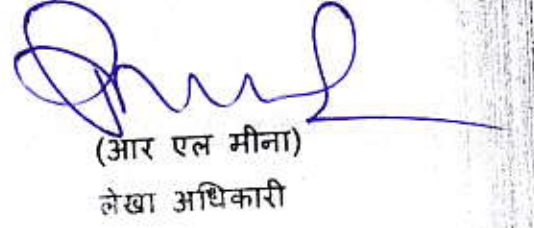 (आर एल मीना)
लेखा अधिकारी